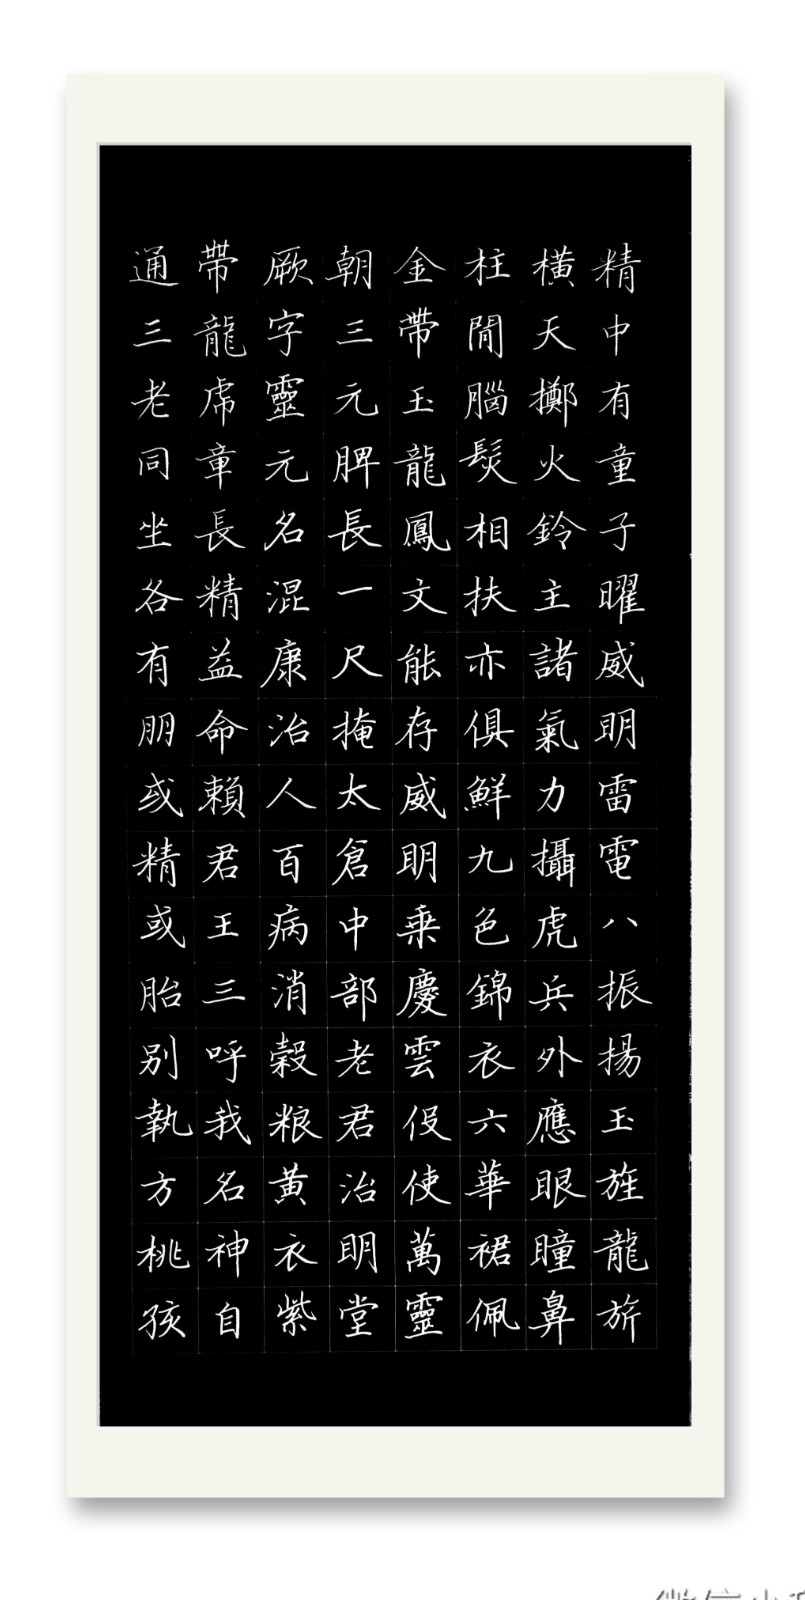 精中有童子曜威明雷電八振揚玉旌龍旂
橫天擲火鈴主諸氣力攝虎兵外應眼瞳鼻
柱間腦髮相扶亦俱鮮九色錦衣六華裙佩
金帶玉龍鳳文能存威明乘慶雲役使萬靈
朝三元脾長一尺掩太倉中部老君治明堂
厥字靈元名混康治人百病消穀粮黃衣紫
帶龍虎章長精益命賴君王三呼我名神自
通三老同坐各有朋或精或胎別執方桃孩